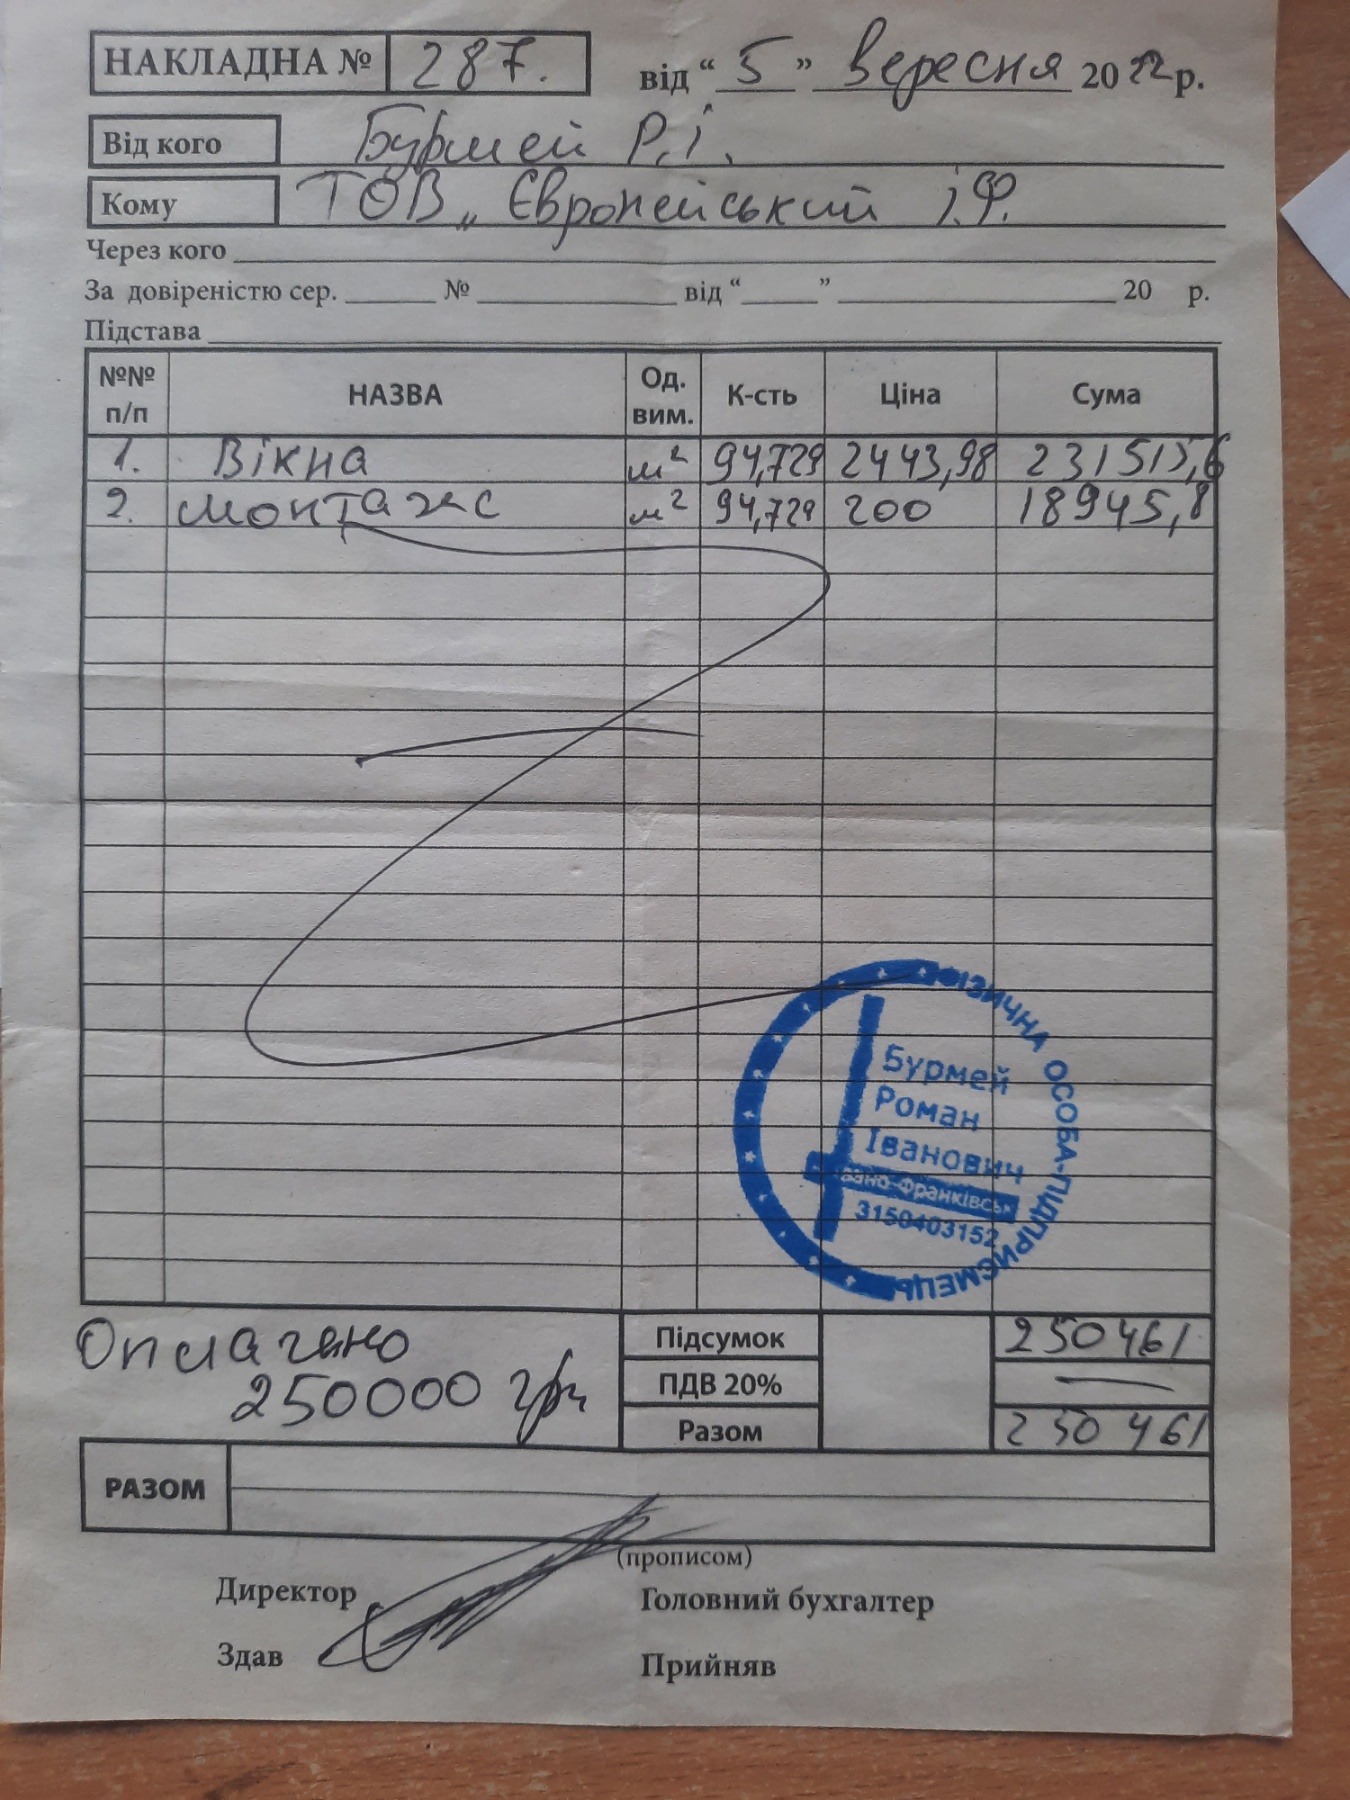 НАКЛАДНА № 287. від “ 5 ” вересня 2022 р.
Від кого Бурмей Р.І.
Кому ТОВ „ Європейський і.Ф.
Через кого
За довіреністю сер. № від “ ” 20 р.
Підстава
№№ п/п НАЗВА Од. вим. К-сть Ціна Сума
1. Вікна м² 94,729 2443,98 231515,6
2. монтаж м² 94,729 200 18945,8
ФІЗИЧНА ОСОБА-ПІДПРИЄМЕЦЬ
Бурмей
Роман
Іванович
3150403152
Оплачено
250000 грн
Підсумок 250461
ПДВ 20% —
Разом 250461
РАЗОМ
(прописом)
Директор Головний бухгалтер
Здав Прийняв